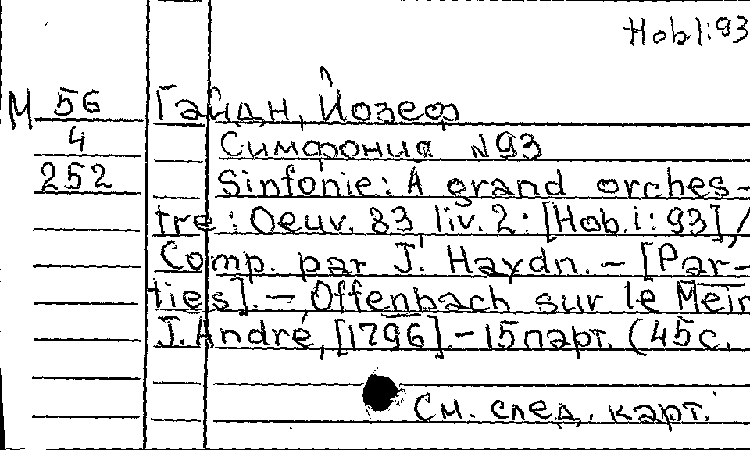 Hob I:93
М 56 Гайдн, Йозеф
4 Симфония N93
252 Sinfonie: A grand orches-
tre: Oeuv. 83 liv. 2: [Hob. i: 93] /
Comp. par J. Haydn. – [Par-
ties]. – Offenbach sur le Mein
J. André, [1796]. – 15 парт. (45 с.
См. след. карт.